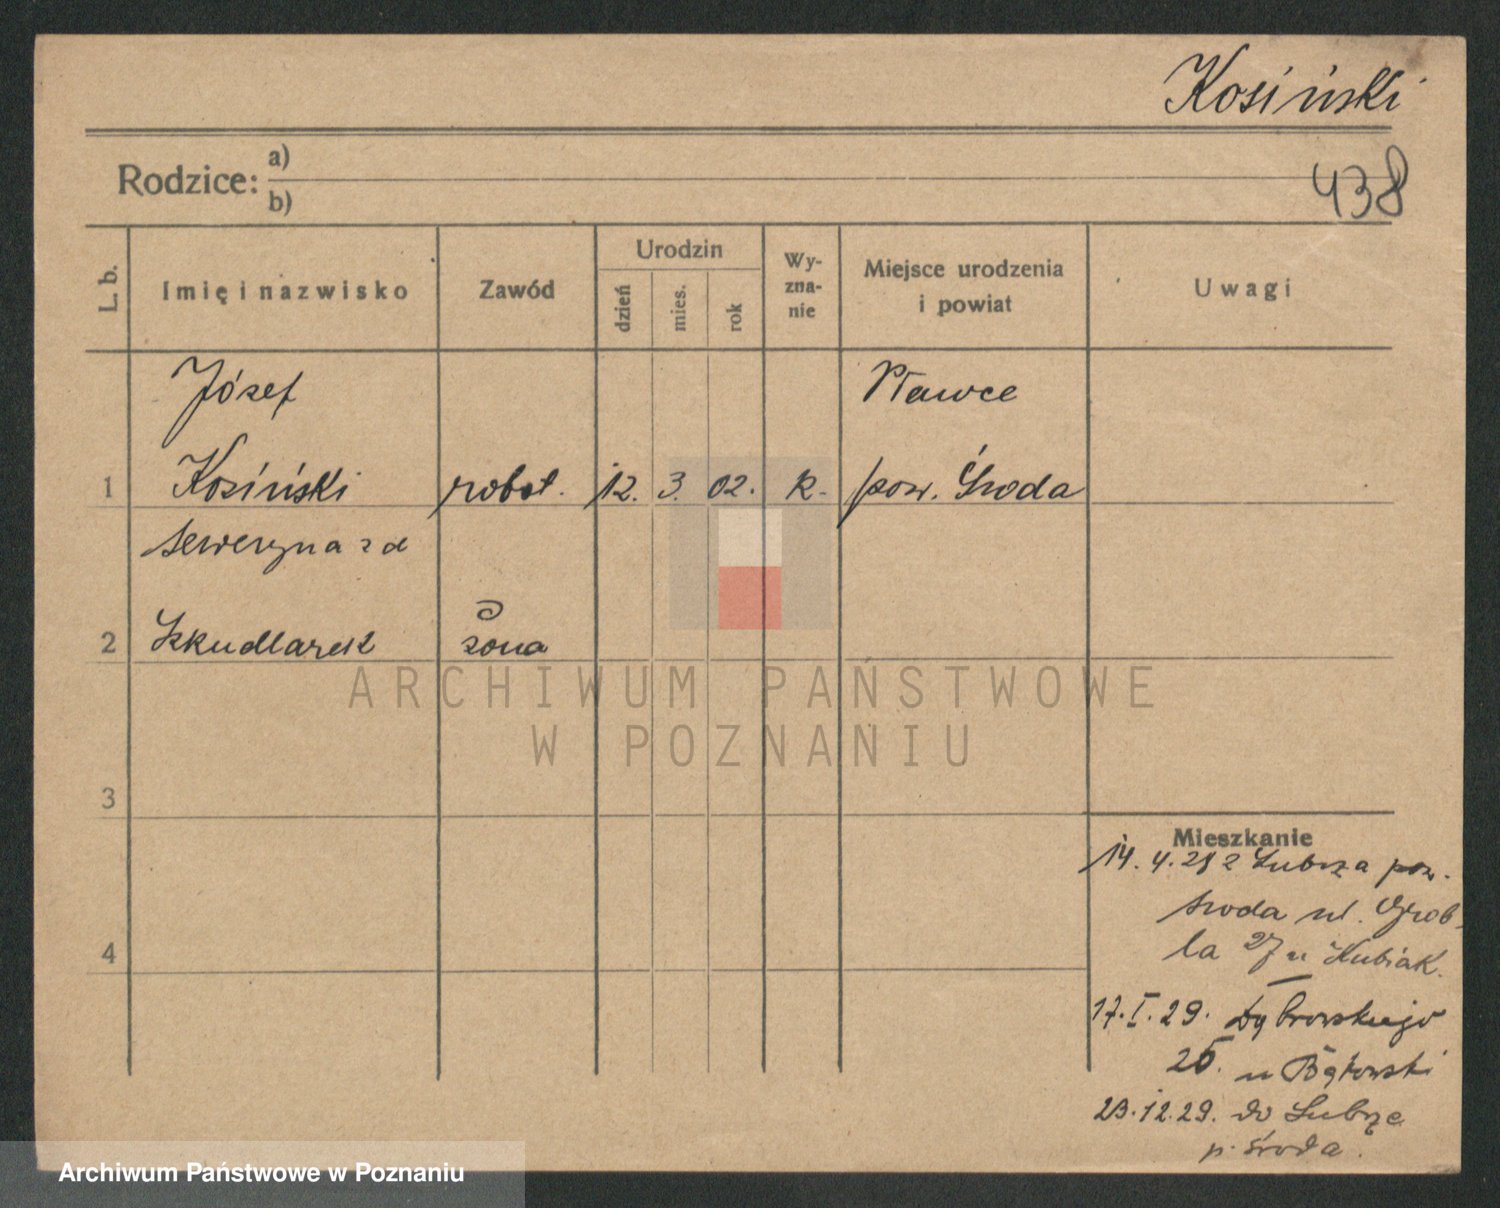 Kosiński
438
Rodzice: a)
b)
L. b.
Imię i nazwisko
Zawód
Urodzin
dzień
mies.
rok
Wy-
zna-
nie
Miejsce urodzenia
i powiat
Uwagi
Józef
Pławce
1 Kosiński robot. 12. 3. 02. k. pow. Środa
Seweryna zd
2 Szkudlarek żona
ARCHIWUM PAŃSTWOWE
W POZNANIU
3
Mieszkanie
14. 4. 28 z Lubrza pow.
Środa ul. Grob-
4
la 27 u Kubiak.
17. I. 29. Dąbrowskiego
25. u Bątowski
23. 12. 29. do Lubrze
p. Środa.
Archiwum Państwowe w Poznaniu